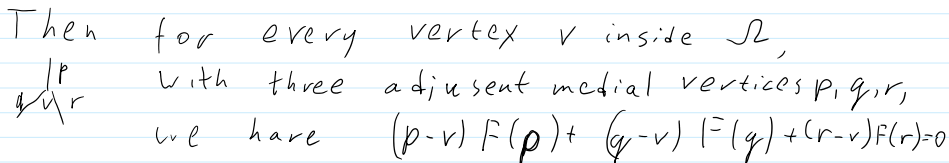 Then for every vertex v inside Ω,
p q v r with three adjusent medial vertices p, q, r,
we have (p-v) F(p) + (q-v) F(q) + (r-v) F(r) = 0